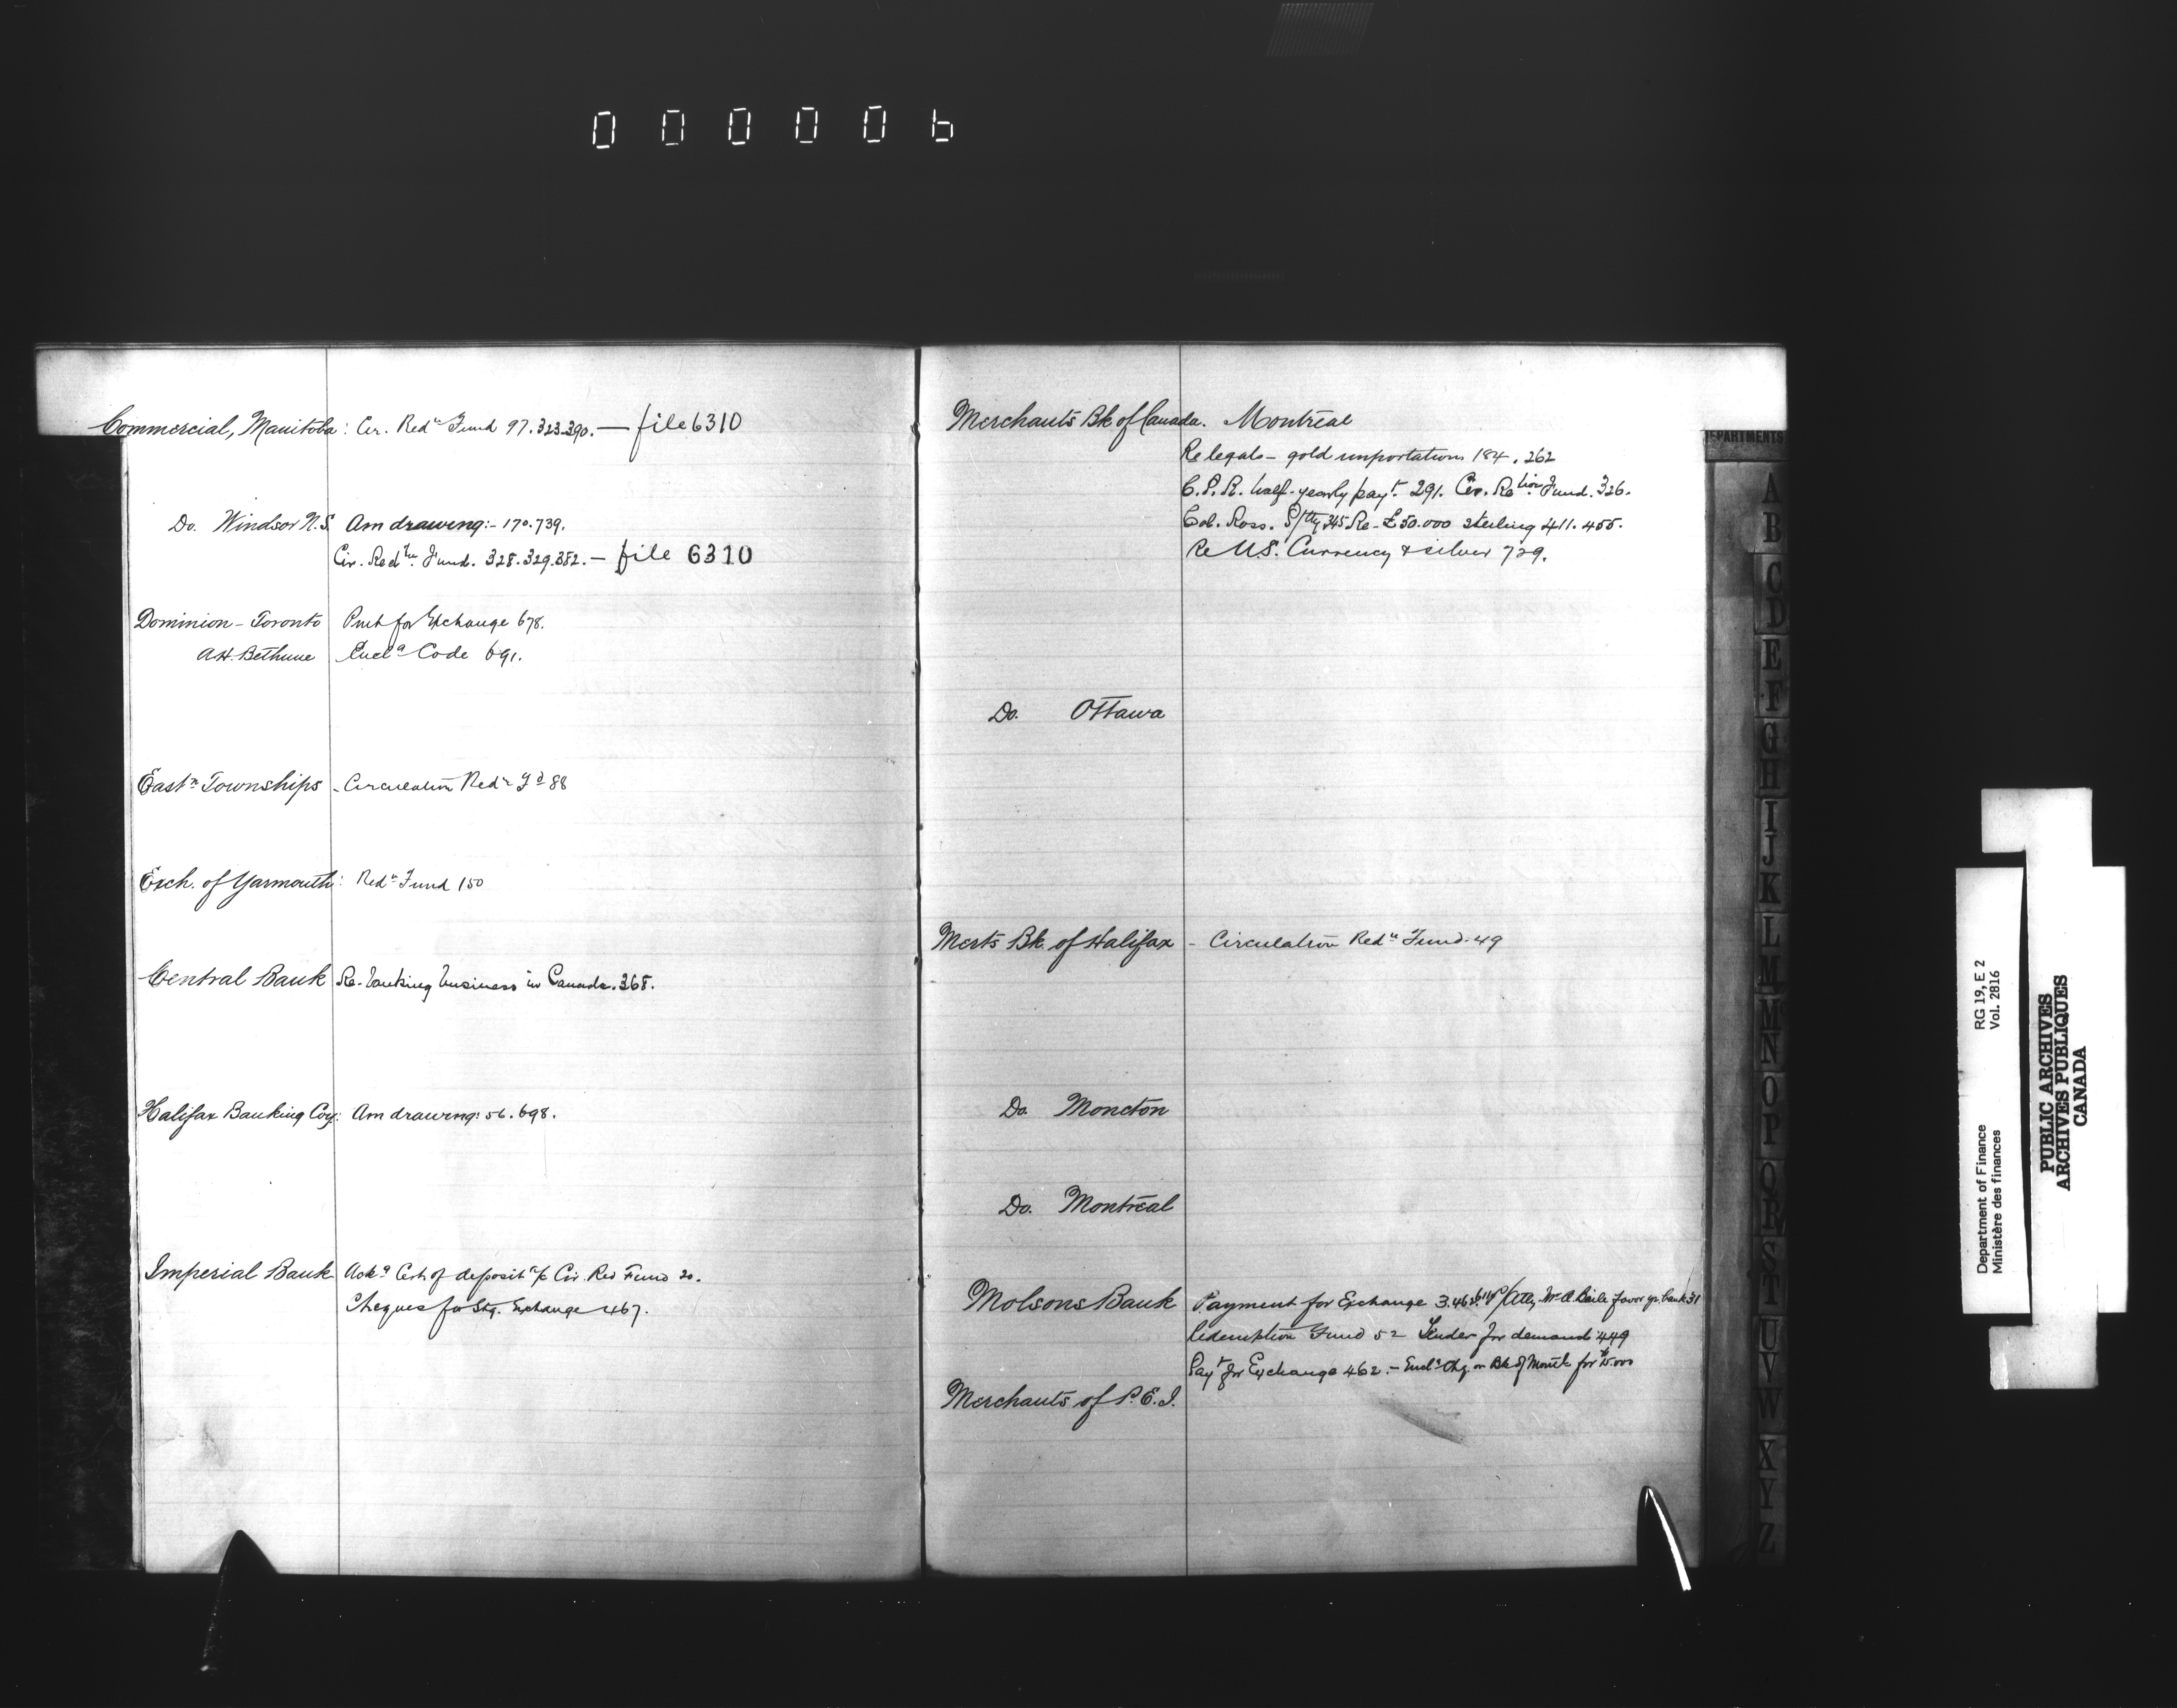 000006
Commercial, Manitoba: Cir. Redn Fund 97.323.390. — file 6310
Do. Windsor N.S. Am drawing:- 170.739.
Cir. Redtn. Fund. 328.329.382. — file 6310
Dominion - Toronto Pmt for Exchange 678.
A.H. Bethune Encl.g Code 691.
Eastn Townships - Circulation Redn Fd 88
Exch. of Yarmouth: Redn Fund 150
Central Bank Re- banking business in Canada. 368.
Halifax Banking Coy: Am drawing: 56. 698.
Imperial Bank Ackg Cert of deposit a/c Cir. Red Fund 20.
Cheques for Stg. Exchange 467.
Merchants Bk of Canada. Montreal
Re legals - gold importation 184. 262
C.P.R. half-yearly payt. 291. Cir. Retion. Fund. 326.
Col. Ross. P/tty 345 Re- £50.000 sterling 411. 455.
Re U.S. Currency & silver 729.
Do. Ottawa
Merts Bk of Halifax - Circulation Redn Fund. 49
Do Moncton
Do. Montreal
Molsons Bank Payment for Exchange 3. 462. P/Atty. W. A. favor yr. bank 31
Redemption Fund 52 Tender for demand 449
Payt for Exchange 462. - Encl.g Chq. on Bk of Montl for
Merchants of P.E.I.
DEPARTMENTS
A
B
C
D
E
F
G
H
I
J
K
L
M
N
O
P
Q
R
S
T
U
V
W
X
Y
Z
Department of Finance RG 19, E 2
Ministère des finances Vol. 2816
PUBLIC ARCHIVES
ARCHIVES PUBLIQUES
CANADA